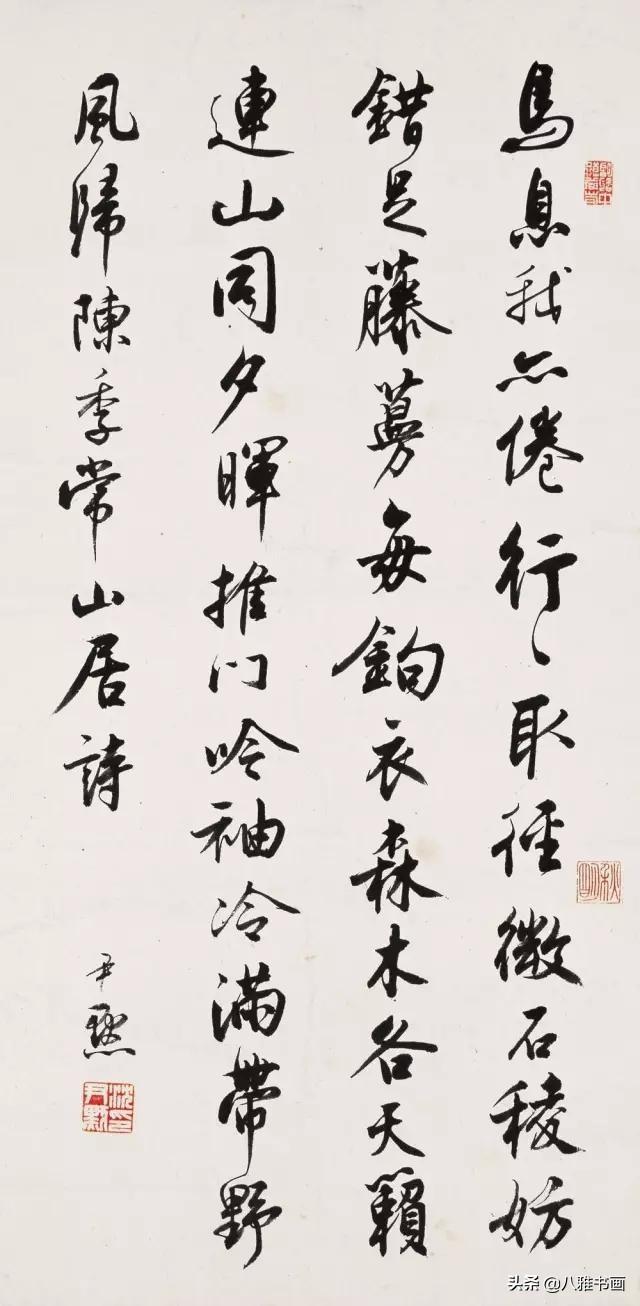 馬息我亦倦行〻取徑微石稜妨
錯足藤蔓每鉤衣森木各天籟
連山同夕暉推门吟袖冷滿帶野
風歸陳季常山居詩
尹默
沈尹默印
秋明
头条 @八雅书画